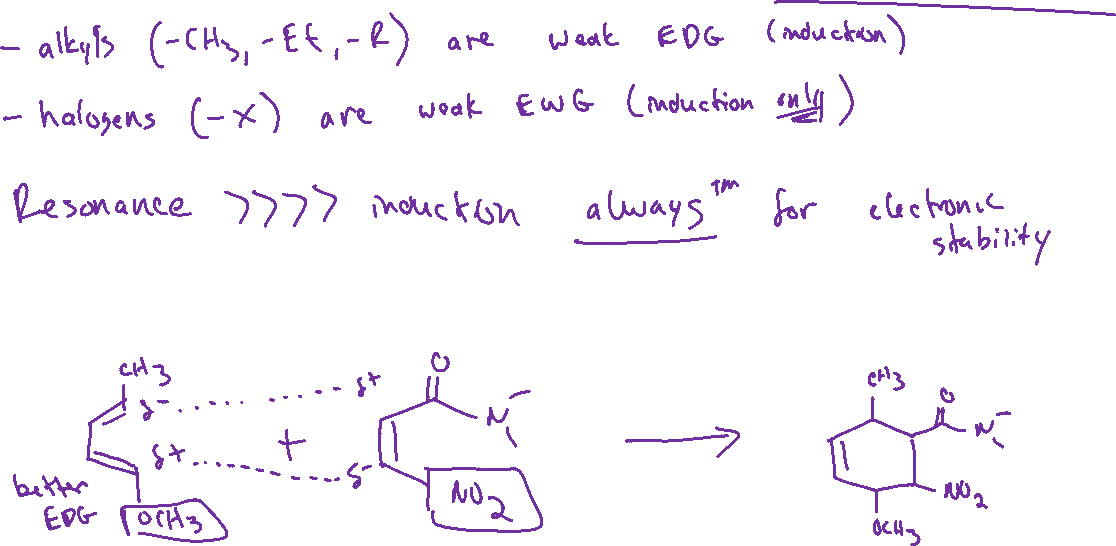 - alkyls (-CH3, -Et, -R) are weak EDG (induction)
- halogens (-X) are weak EWG (induction only)
Resonance >>>> induction always™ for electronic
stability
CH3
δ-
δ+
δ+
δ-
+
O
N
better
EDG
OCH3
NO2
CH3
O
N
NO2
OCH3